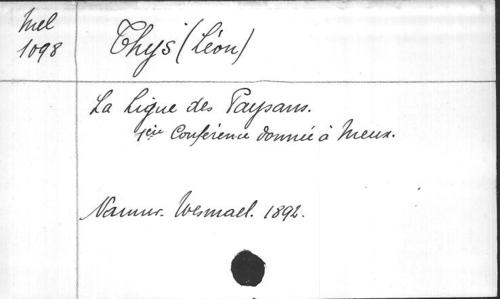 Mel
1098
Thys (Léon)
La Ligue des Paysans.
1ère Conférence donnée à Meux.
Namur. Wesmael. 1892.